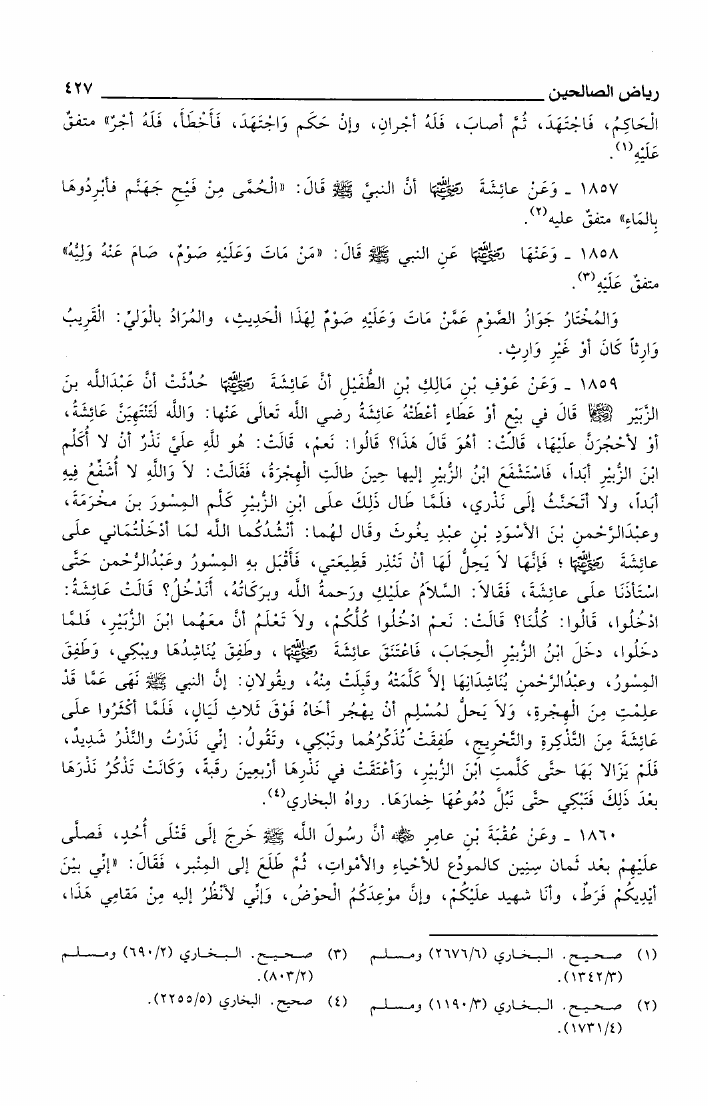 رياض الصالحين ٤٢٧
الْحَاكِمُ، فَاجْتَهَدَ، ثُمَّ أصابَ، فَلَهُ أجْرانِ، وإنْ حَكَم وَاجْتَهَدَ، فَأَخْطَأَ، فَلَهُ أجْرٌ» متفقٌ
عَلَيْهِ(١).
١٨٥٧ ـ وَعَنْ عائِشَةَ رضي الله عنها أنَّ النبيَّ ﷺ قَالَ: «الْحُمَّى مِنْ فَيْحِ جَهَنَّم فأَبْرِدُوهَا
بِالمَاءِ» متفقٌ عليه(٢).
١٨٥٨ ـ وَعَنْهَا رضي الله عنها عَنِ النبي ﷺ قَالَ: «مَنْ مَاتَ وَعَلَيْهِ صَوْمٌ، صَامَ عَنْهُ وَلِيُّهُ»
متفقٌ عَلَيْهِ(٣).
وَالمُخْتَارُ جَوَازُ الصَّوْمِ عَمَّنْ مَاتَ وَعَلَيْهِ صَوْمٌ لِهَذَا الْحَدِيثِ، والمُرَادُ بالْوَليِّ: الْقَرِيبُ
وَارِثاً كَانَ أوْ غَيْرِ وَارِثٍ.
١٨٥٩ ـ وَعَن عَوْفِ بْنِ مَالِكِ بْنِ الطُّفَيْلِ أنَّ عَائِشَةَ رضي الله عنها حُدِّثَتْ أنَّ عَبْدَاللَّه بنَ
الزُّبَيْرِ رضي الله عنهما قَالَ في بَيْعٍ أوْ عَطَاءٍ أعْطَتْهُ عَائِشَةُ رضي الله تَعالَى عَنْها: وَاللَّه لَتَنْتَهِيَنَّ عَائِشَةُ،
أوْ لأَحْجُرَنَّ عَلَيْهَا، قَالَتْ: أهُوَ قَالَ هَذَا؟ قَالُوا: نَعَمْ، قَالَتْ: هُو للَّهِ عَلَيَّ نَذْرٌ أنْ لا أُكَلِّم
ابْنَ الزُّبَيْرِ أبَداً، فَاسْتَشْفَع ابْنُ الزُّبَيْرِ إليها حِينَ طالَتِ الْهِجْرَةُ، فَقَالَتْ: لاَ وَاللَّهِ لا أُشَفِّعُ فِيهِ
أبَداً، ولا أتَحَنَّثُ إلَى نَذْرِي، فلَمَّا طَال ذَلِكَ علَى ابْنِ الزُّبَيْرِ كَلَّم المِسْوَرَ بنَ مخْرَمَةَ،
وعبْدَالرَّحْمنِ بْنَ الأسْوَدِ بْنِ عبْدِ يغُوثَ وقَال لهُما: أنْشُدُكُما اللَّه لمَا أدْخَلْتُمَاني علَى
عائِشَةَ رضي الله عنها؛ فَإنَّهَا لاَ يَحِلُّ لَهَا أنْ تَنْذِر قَطِيعَتي، فَأقْبَل بهِ المِسْورُ وعَبْدُالرَّحْمن حَتَّى
اسْتَأذَنَا علَى عائِشَةَ، فَقَالاَ: السَّلاَمُ علَيْكِ ورَحمةُ اللَّه وبرَكَاتُهُ، أنَدْخُلُ؟ قَالَتْ عَائِشَةُ:
ادْخُلُوا، قَالُوا: كُلُّنَا؟ قَالَتْ: نَعمْ ادْخُلُوا كُلُّكُمْ، ولاَ تَعْلَمُ أنَّ معَهُما ابْنَ الزُّبَيْرِ، فَلمَّا
دخَلُوا، دخَلَ ابْنُ الزُّبيْرِ الْحِجَابَ، فَاعْتَنَقَ عائِشَةَ رضي الله عنها، وطَفِقَ يُنَاشِدُهَا ويبْكِي، وَطَفِقَ
المِسْورُ، وعبْدُالرَّحْمنِ يُنَاشِدَانِهَا إلاَّ كَلَّمَتْهُ وقَبِلَتْ مِنْهُ، ويقُولانِ: إنَّ النبي ﷺ نَهَى عَمَّا قَدْ
علِمْتِ مِنَ الْهِجْرةِ، وَلاَ يَحلُّ لمُسْلمٍ أن يَهْجُر أخَاهُ فَوْقَ ثَلاثِ لَيَالٍ، فَلَمَّا أكْثَرُوا علَى
عَائِشَةَ مِنَ التَّذْكِرةِ والتَّحْرِيجِ، طَفِقَتْ تُذَكِّرُهُما وتَبْكِي، وتَقُولُ: إنِّي نَذَرْتُ والنَّذْرُ شَدِيدٌ،
فَلَمْ يَزَالا بَهَا حتَّى كَلَّمتِ ابْنَ الزُّبَيْرِ، وَأعْتَقَتْ في نَذْرِهَا أرْبعِينَ رقَبةً، وَكَانَتْ تَذْكُرُ نَذْرَهَا
بعْدَ ذَلِكَ فَتَبْكِي حتَّى تَبُلَّ دُمُوعُهَا خِمارَهَا. رواهُ البخاري(٤).
١٨٦٠ ـ وعَنْ عُقْبَةَ بْنِ عامِرٍ رضي الله عنه أنَّ رسُولَ اللَّه ﷺ خَرجَ إلَى قَتْلَى أُحُدٍ، فَصلَّى
علَيْهِمْ بعْد ثَمان سِنِين كالمودِّع للأحْياءِ والأمْواتِ، ثُمَّ طَلَعَ إلى المِنْبر، فَقالَ: «إنِّي بيْنَ
أيْدِيكُمْ فَرَطٌ، وأنا شهيد علَيْكُمْ، وإنَّ موْعِدَكُمُ الْحوْضُ، وَإنِّي لأنْظُرُ إليه مِنْ مَقامِي هَذَا،
(١) صحيح. البخاري (٢٦٧٦/٦) ومسلم
(١٣٤٢/٣).
(٢) صحيح. البخاري (١١٩٠/٣) ومسلم
(١٧٣١/٤).
(٣) صحيح. البخاري (٦٩٠/٢) ومسلم
(٨٠٣/٢).
(٤) صحيح. البخاري (٢٢٥٥/٥).